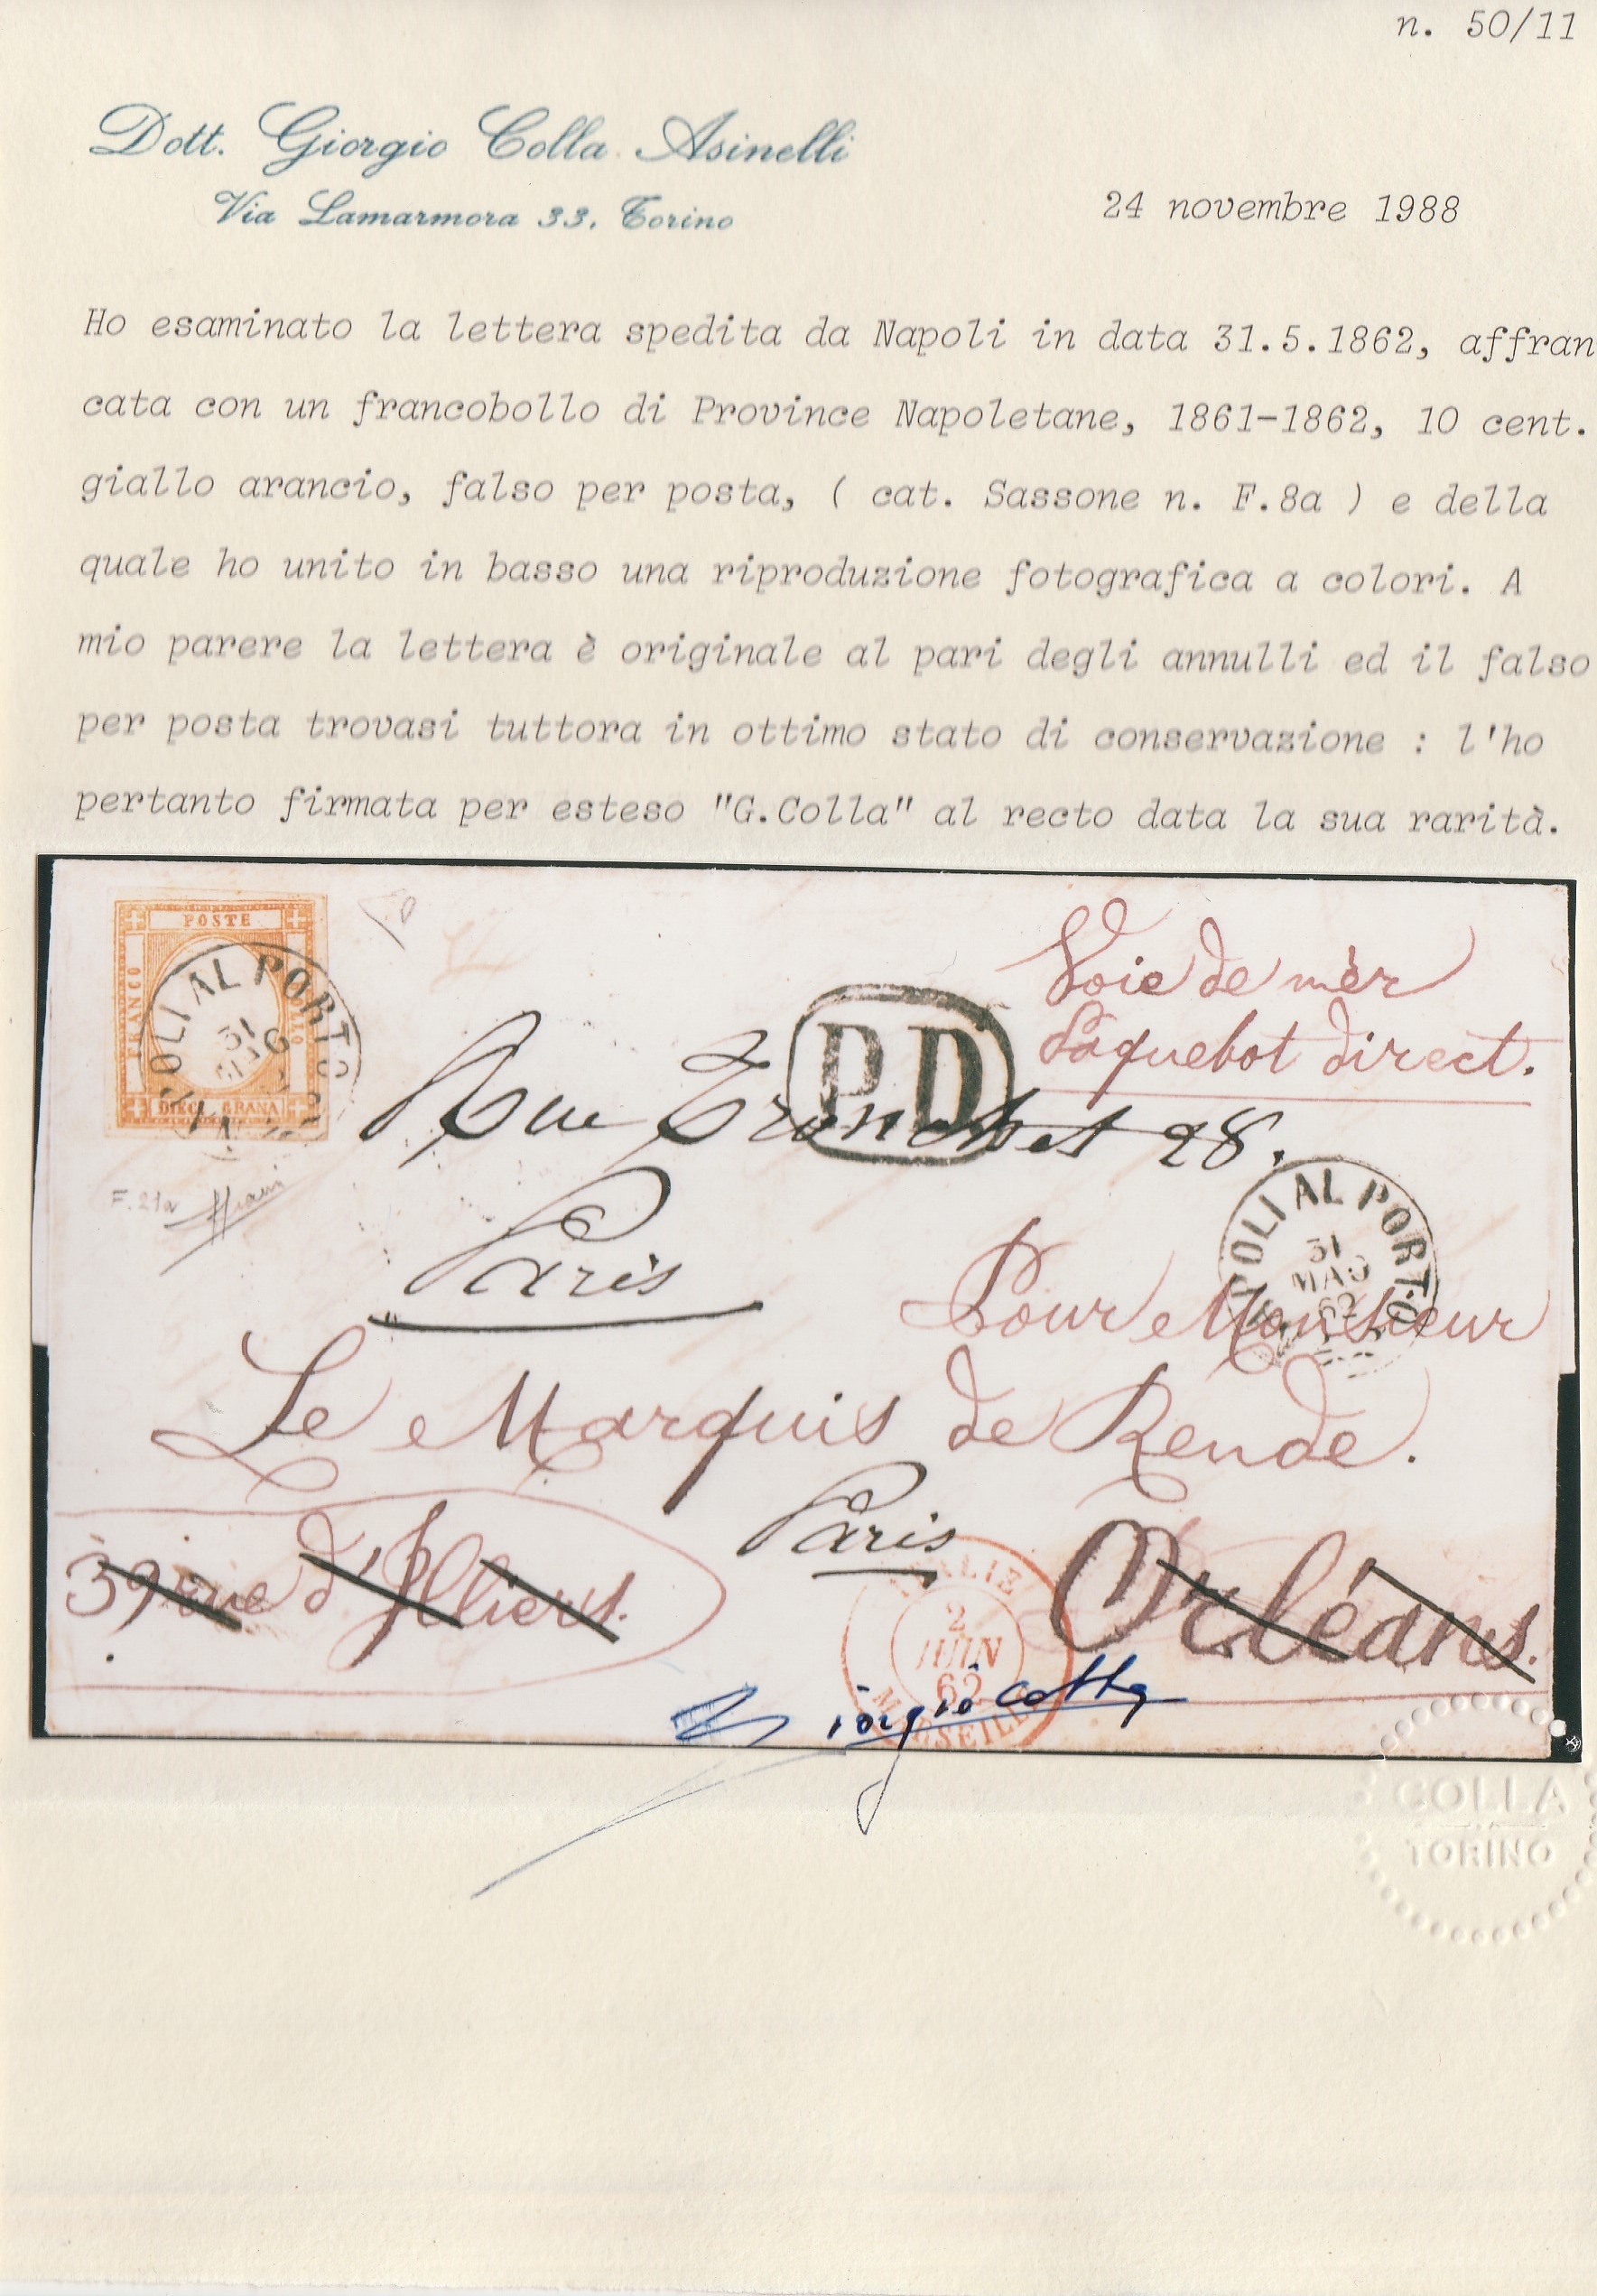 n. 50/11
Dott. Giorgio Colla Asinelli
Via Lamarmora 33, Torino
24 novembre 1988
Ho esaminato la lettera spedita da Napoli in data 31.5.1862, affran
cata con un francobollo di Province Napoletane, 1861-1862, 10 cent.
giallo arancio, falso per posta, ( cat. Sassone n. F.8a ) e della
quale ho unito in basso una riproduzione fotografica a colori. A
mio parere la lettera è originale al pari degli annulli ed il falso
per posta trovasi tuttora in ottimo stato di conservazione : l'ho
pertanto firmata per esteso "G.Colla" al recto data la sua rarità.
POSTE
FRANCO
DIECI GRANA
POLI AL PORTO
31
MAG
Voie de mèr
Paquebot direct.
PD
Rue Tronchet 28.
Paris
F.21a
POLI AL PORTO
31
MAG
62
Pour Monsieur
Le Marquis de Rende.
Paris
39 rue d'Illiers.
Orléans.
ITALIE
2
JUIN
62
MARSEILLE
Giorgio Colla
COLLA
TORINO